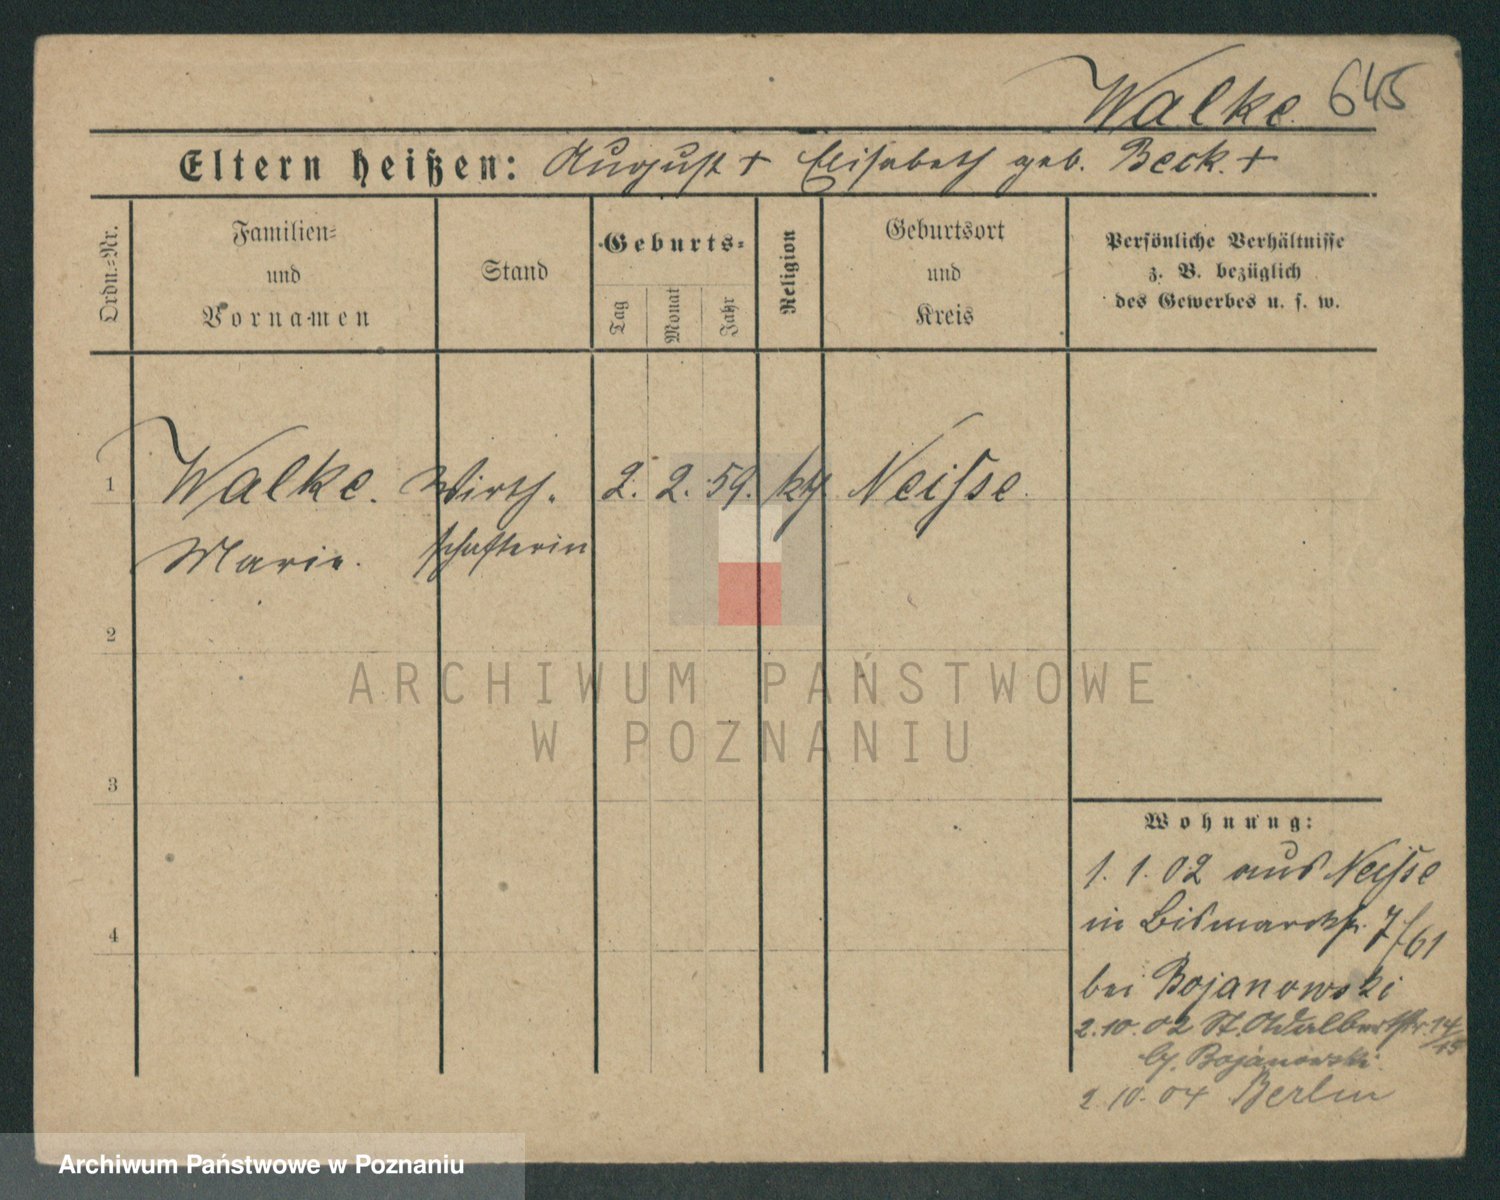 Walke. 645
Eltern heißen: August + Elisabeth geb. Beck. +
Ordn.-Nr.
Familien-
und
Vornamen
Stand
Geburts-
Tag
Monat
Jahr
Religion
Geburtsort
und
Kreis
Persönliche Verhältnisse
z. B. bezüglich
des Gewerbes u. s. w.
1 Walke. Wirth- 2. 2. 59. kth Neisse.
Marie. schafterin
2
3
4
Wohnung:
1. 1. 02 aus Neisse
in Bismarckstr. 7/61
bei Bojanowski
2. 10. 02 St. Adalbertstr. 14/15
b/. Bojanowski
2. 10. 04 Berlin
ARCHIWUM PAŃSTWOWE
W POZNANIU
Archiwum Państwowe w Poznaniu